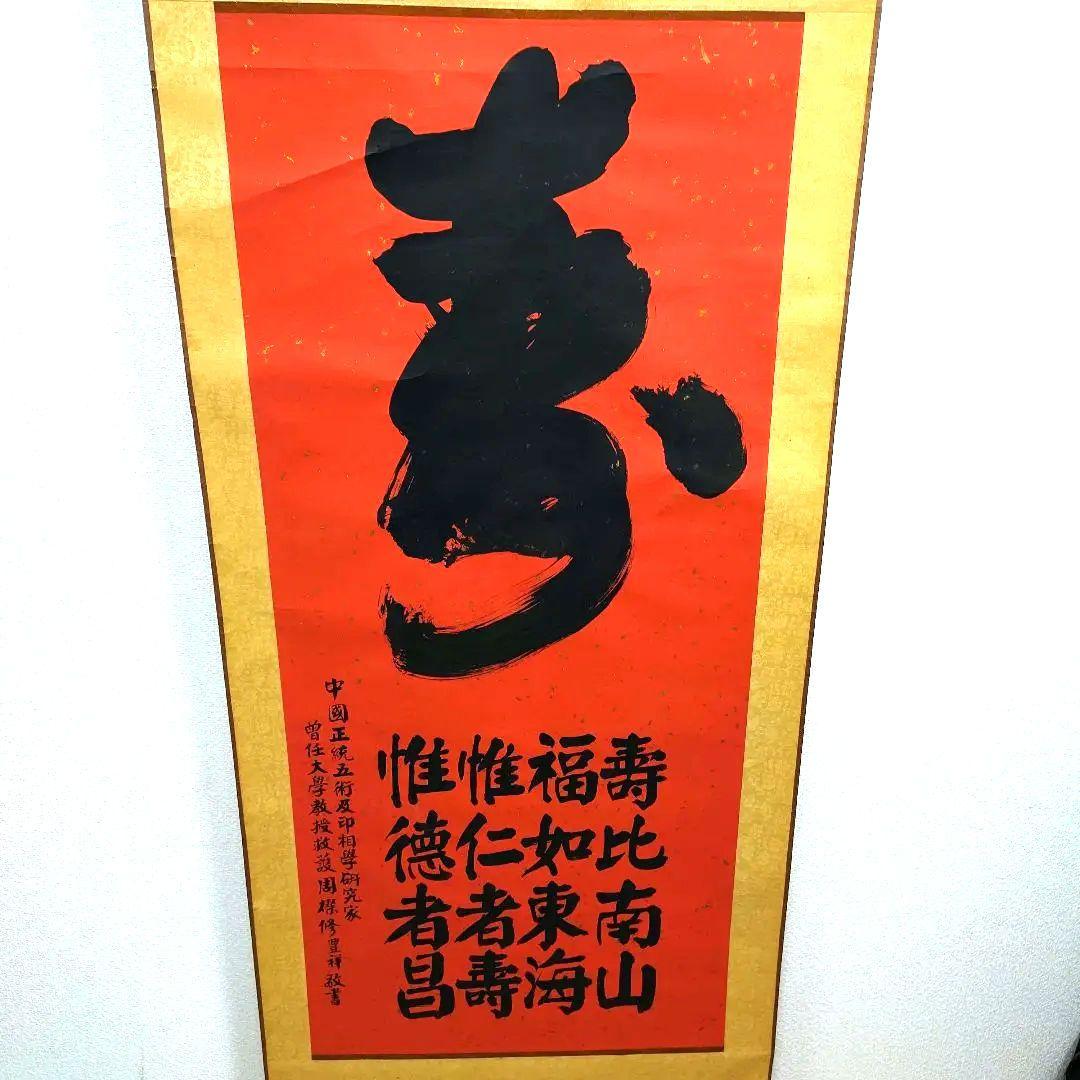 壽
壽比南山
福如東海
惟仁者壽
惟德者昌
中國正統五術及印相學研究家
曾任大學教授救護周櫟修豐祥敬書